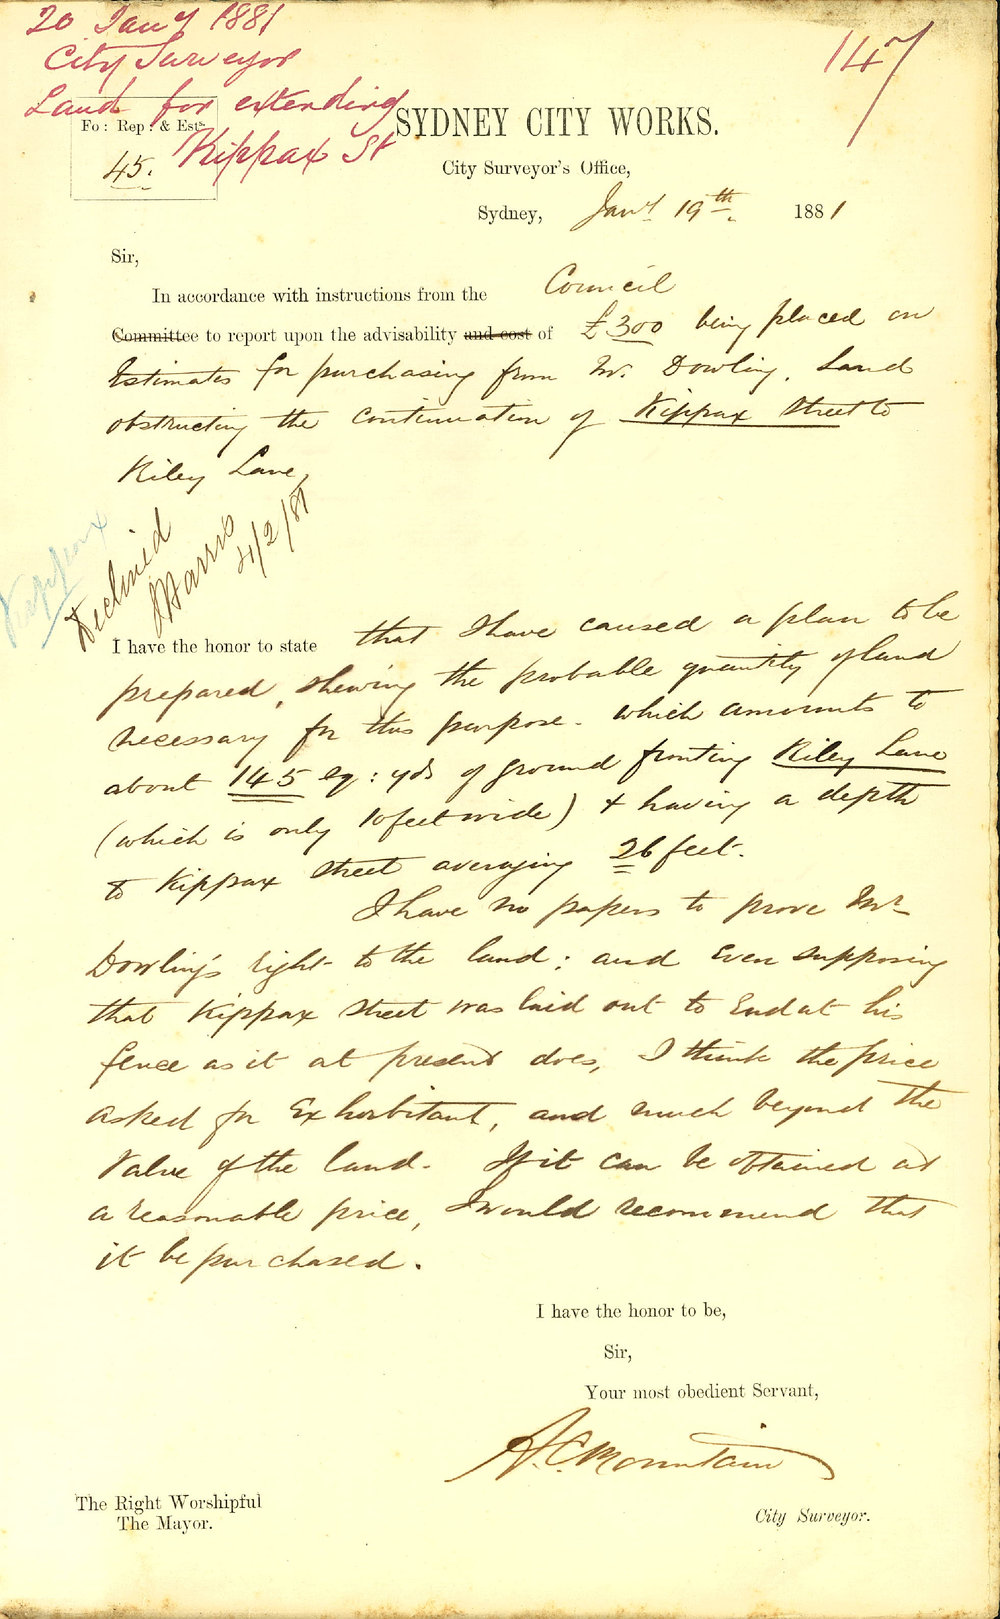 20 Jany 1881
City Surveyor
Land for extending
Kippax St
147
Fo: Rep: & Ests.
45.
SYDNEY CITY WORKS.
City Surveyor's Office,
Sydney, Jany 19th. 1881
Sir,
In accordance with instructions from the Council
Committee to report upon the advisability and cost of £300 being placed on
Estimates for purchasing from Mr. Dowling, Land
obstructing the continuation of Kippax Street to
Riley Lane,
Kippax
Declined
JHarris
4/2/81
I have the honor to state that I have caused a plan to be
prepared, shewing the probable quantity of land
necessary for this purpose - which amounts to
about 145 sq: yds of ground fronting Riley Lane
(which is only 10 feet wide) & having a depth
to Kippax Street averaging 26 feet.
I have no papers to prove Mr
Dowling's right to the land; and even supposing
that Kippax Street was laid out to End at his
fence as it at present does, I think the price
asked for Exhorbitant, and much beyond the
Value of the land. If it can be obtained at
a reasonable price, I would recommend that
it be purchased.
I have the honor to be,
Sir,
Your most obedient Servant,
A.C. Mountain
The Right Worshipful
The Mayor.
City Surveyor.